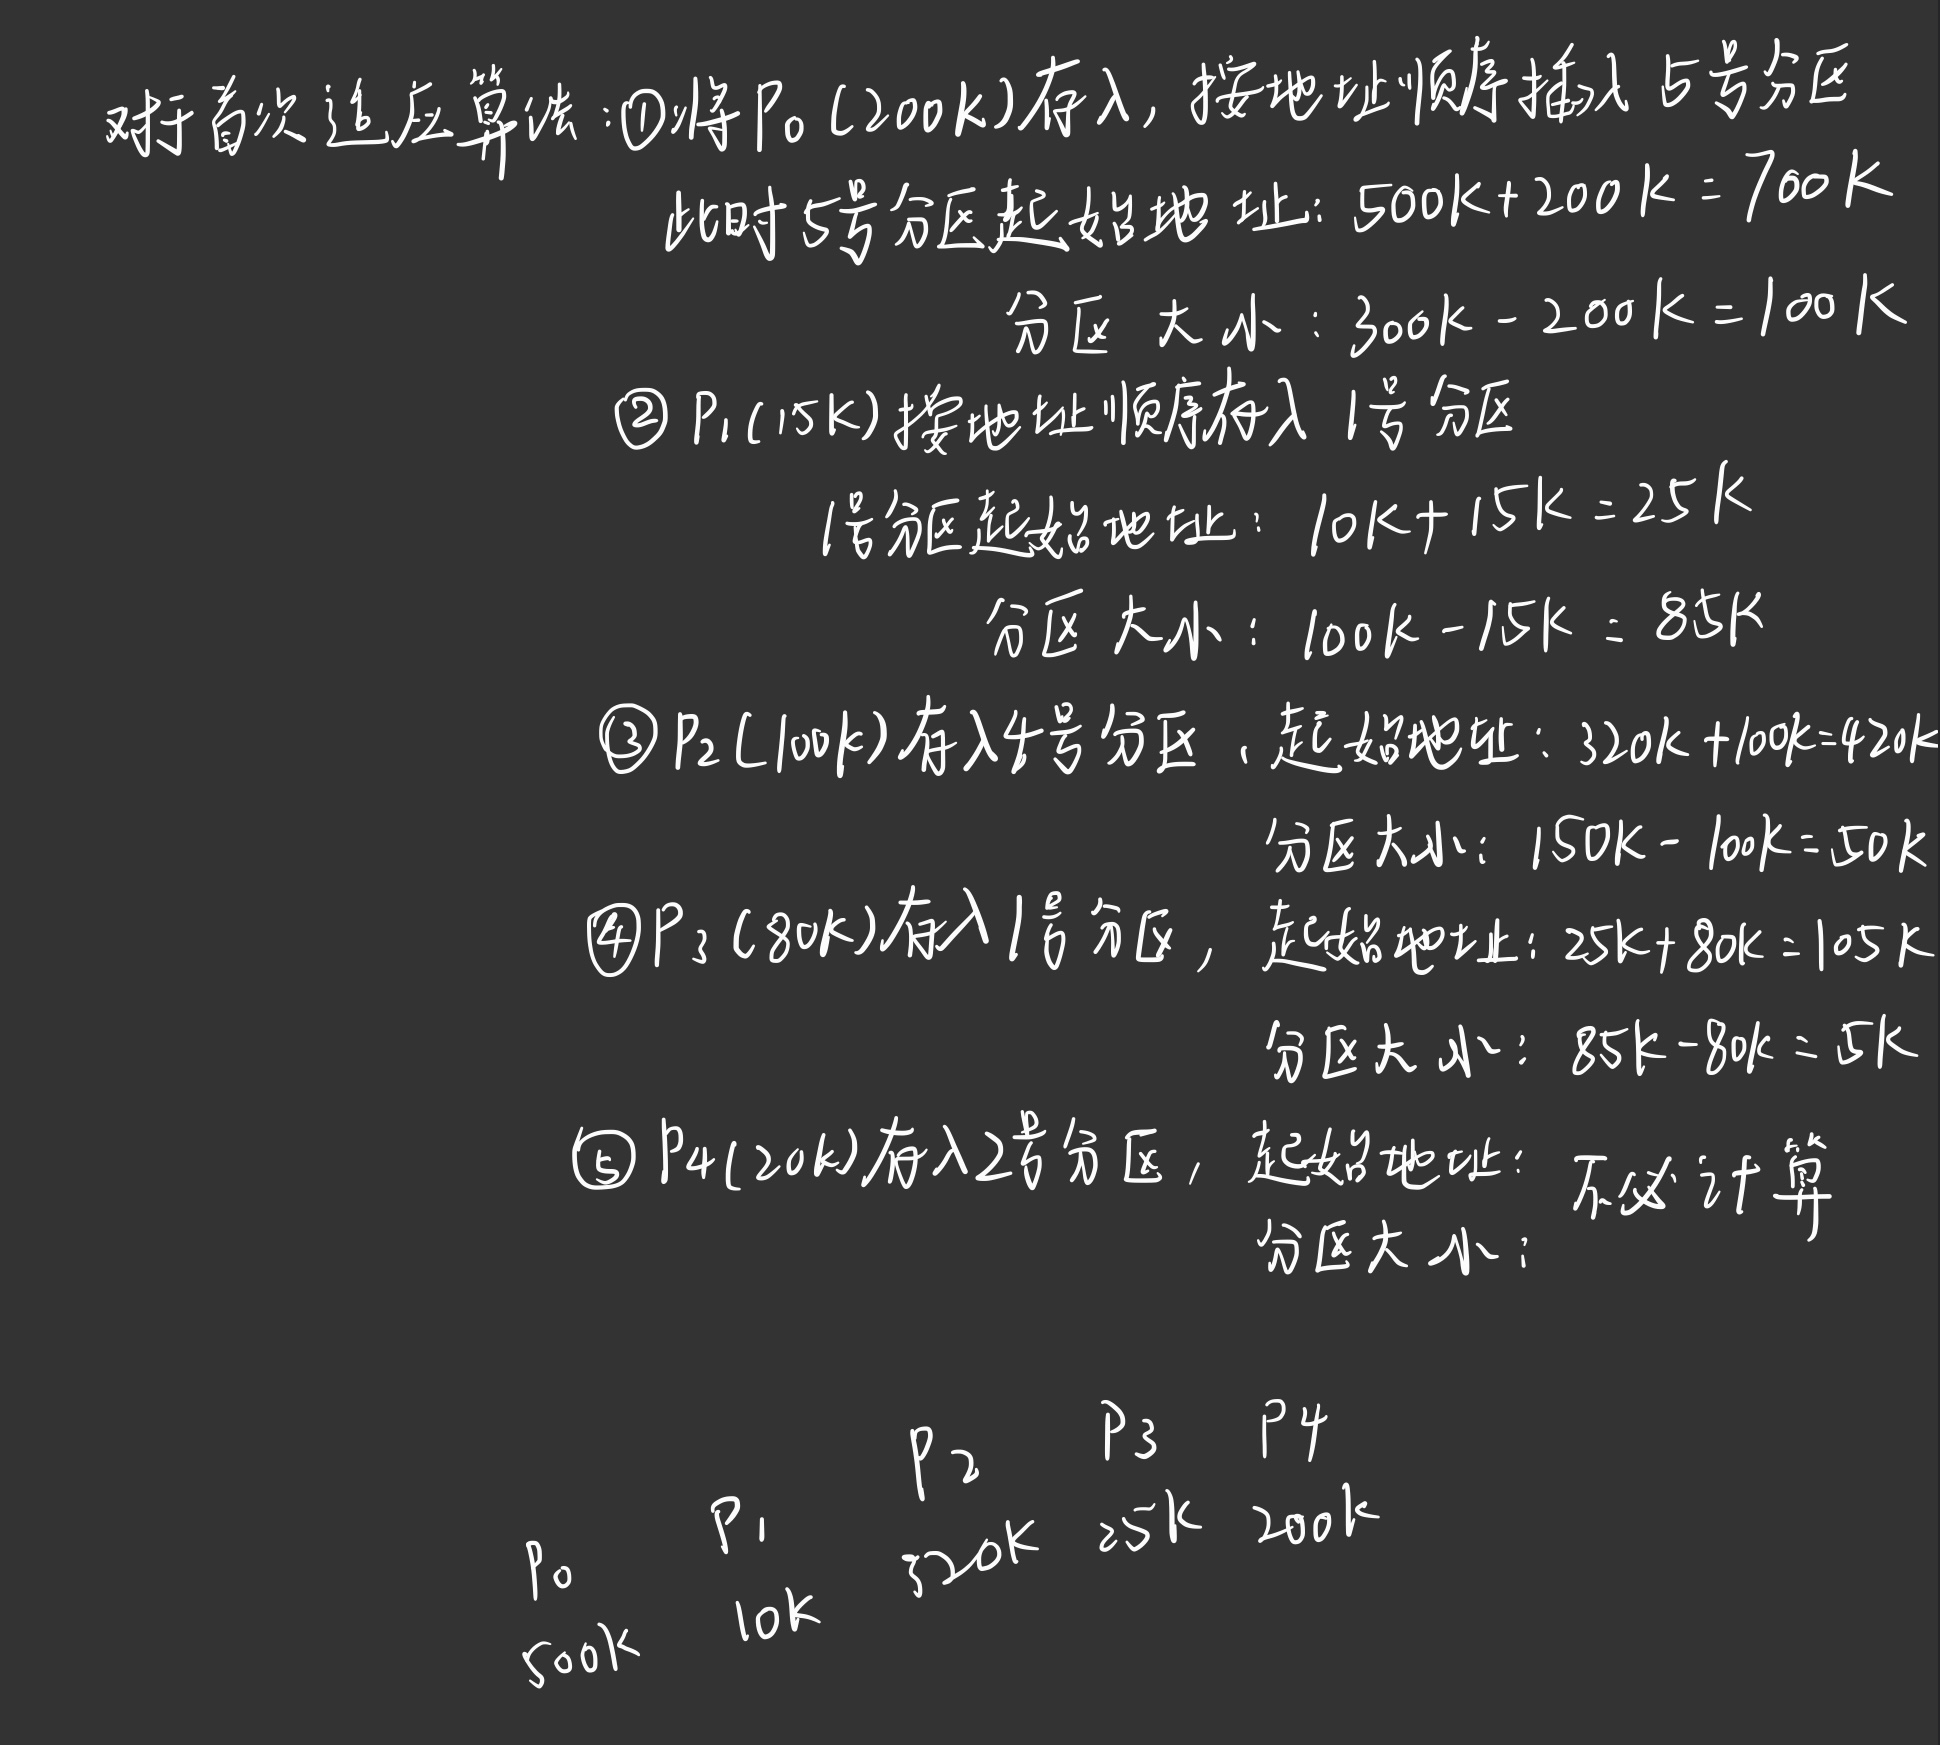 对于首次适应算法：①将P0(200k)存入，按地址顺序插入5号分区
此时5号分区起始地址：500k+200k=700k
分区大小：300k-200k=100k
② P1(15k)按地址顺序存入1号分区
1号分区起始地址：10k+15k=25k
分区大小：100k-15k=85k
③ P2(100k)存入4号分区，起始地址：320k+100k=420k
分区大小：150k-100k=50k
④ P3(80k)存入1号分区，起始地址：25k+80k=105k
分区大小：85k-80k=5k
⑤ P4(20k)存入2号分区，起始地址：不必计算
分区大小：
P0 P1 P2 P3 P4
500k 10k 320k 25k 200k